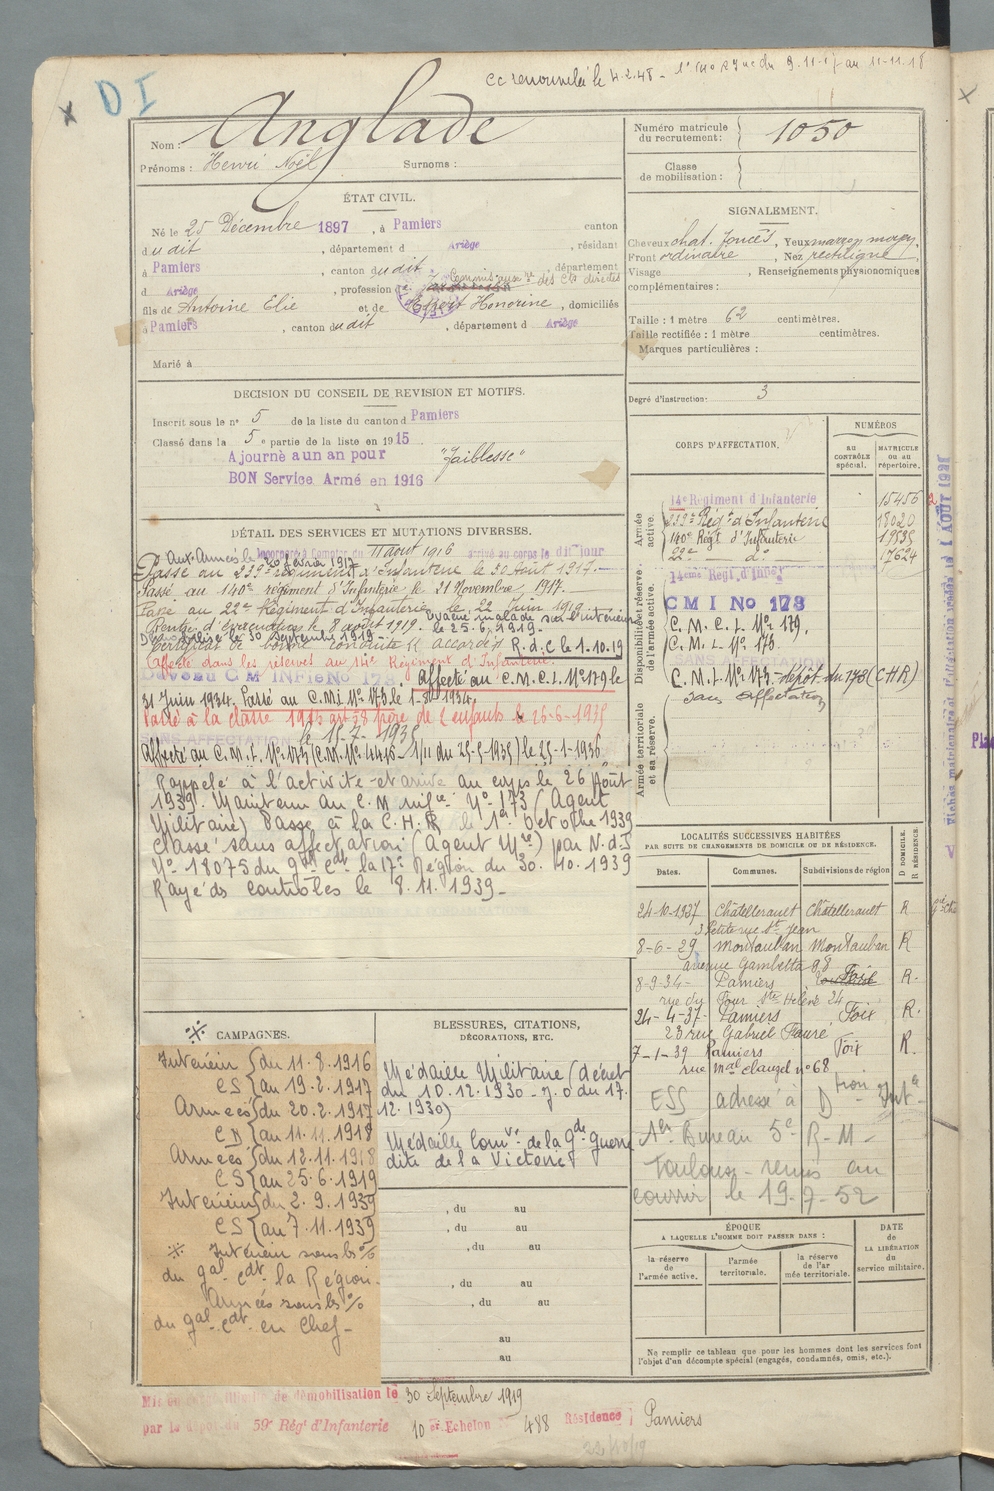 D I
cc renouvelée le 4-2-48 - du 9-11-17 au 11-11-18
Nom : Anglade
Prénoms : Henri Noël Surnoms :
Numéro matricule du recrutement : 1050
Classe de mobilisation :
ÉTAT CIVIL.
Né le 25 Décembre 1897, à Pamiers canton
dudit, département d Ariège, résidant
à Pamiers, canton dudit, département
d Ariège, profession de Commis aux des Cts directes
fils de Antoine Elie et de Espert Honorine, domiciliés
à Pamiers, canton dudit, département d Ariège
Marié à
SIGNALEMENT.
Cheveux chat. foncés, Yeux marron moyen.
Front ordinaire, Nez rectiligne
Visage , Renseignements physionomiques
complémentaires :
Taille : 1 mètre 62 centimètres.
Taille rectifiée : 1 mètre centimètres.
Marques particulières :
Degré d'instruction : 3
DECISION DU CONSEIL DE REVISION ET MOTIFS.
Inscrit sous le n° 5 de la liste du canton d Pamiers
Classé dans la 5e partie de la liste en 1915
Ajourné a un an pour "faiblesse"
BON Service Armé en 1916
DÉTAIL DES SERVICES ET MUTATIONS DIVERSES.
Incorporé à Compter du 11 août 1916 arrivé au corps le dit jour
Aux Armées le 20 février 1917
Passé au 259e régiment d'Infanterie le 30 Août 1917.
Passé au 140e régiment d'Infanterie le 21 Novembre 1917.
Passé au 22e Régiment d'Infanterie le 22 Juin 1919
Evacué malade sur l'intérieur
le 25.6.1919.
Rentré d'évacuation le 8 août 1919.
Démobilisé le 30 Septembre 1919.
Certificat de bonne conduite accordé R.d.C le 1.10.19
Affecté dans les réserves au 14e Régiment d'Infanterie.
Devenu CM INFie No 173
Affecté au C.M.C.I. No 179 le
21 Juin 1934. Passé au C.M.I No 173 le 1-8-1934.
Passé à la classe 1913 art 58 père de 2 enfants le 26-6-1935
SANS AFFECTATION le 15-7-1935
Affecté au C.M.I. No 173 (C.M. No 4416-1/11 du 25-5-1935) le 25-1-1936
Rappelé à l'activité et arrivé au corps le 26 Août
1939. Maintenu au C.M infie No 173 (Agent
Militaire) Passé à la C.H.R le 1er Octobre 1939
Classé sans affectation (Agent Mre) par N.d.S
No 18075 du gal Cdt la 17e Région du 30.10.1939
Rayé ds contrôles le 8.11.1939-
CORPS D'AFFECTATION.
NUMÉROS
AU CONTRÔLE spécial.
MATRICULE ou au répertoire.
Armée active.
14e Régiment d'Infanterie 15456
259e Régt d'Infanterie 18020
140e Régt d'Infanterie 19535
22e do 17624
Disponibilité et réserve de l'armée active.
14eme Régt d'Infie
C M I No 173
C.M.C.I. No 179.
C.M.I. No 173.
SANS AFFECTATION
C.M.I. No 173 - dépôt du 178 (CHR)
sans affectation
Armée territoriale et sa réserve.
LOCALITÉS SUCCESSIVES HABITÉES
PAR SUITE DE CHANGEMENTS DE DOMICILE OU DE RÉSIDENCE.
D DOMICILE. R RÉSIDENCE.
Dates. Communes. Subdivisions de région
24-10-1937 Châtellerault Châtellerault R
3 Petite rue St Jean
8-6-29 Montauban Montauban R
avenue Gambetta 98
8-9-34- Pamiers Foix R.
rue du Four Ste Hélène 24
24-4-37- Pamiers Foix R.
23 rue Gabriel Fauré
7-1-39 Pamiers Foix R.
rue Mal Clauzel no 68
ESS adressé à Dtion Intce
1er Bureau 5e R-M-
Toulouse - remis au
courrir le 19-7-52
※ CAMPAGNES.
Intérieur {du 11.8.1916
CS {au 19.2.1917
Armées {du 20.2.1917
CD {au 11.11.1918
Armées {du 12.11.1918
CS {au 25.6.1919
Intérieur {du 2.9.1939
CS {au 7.11.1939
※ Intérieur sous ls %
du gal cdt la Région.
Armées sous ls %
du gal cdt en Chef-
BLESSURES, CITATIONS, DÉCORATIONS, ETC.
Médaille Militaire (décret
du 10.12.1930 - J.O du 17.
12.1930)
Médaille Comve de la Gde Guerre
dite de la Victoire
, du au
, du au
, du au
, du au
, du au
au
au
ÉPOQUE
A LAQUELLE L'HOMME DOIT PASSER DANS :
la réserve de l'armée active.
l'armée territoriale.
la réserve de l'armée territoriale.
DATE DE LA LIBÉRATION du service militaire.
Ne remplir ce tableau que pour les hommes dont les services font
l'objet d'un décompte spécial (engagés, condamnés, omis, etc.).
de démobilisation le 30 Septembre 1919
par le dépôt du 59e Régt d'Infanterie 10e Echelon No 488 Résidence : Pamiers